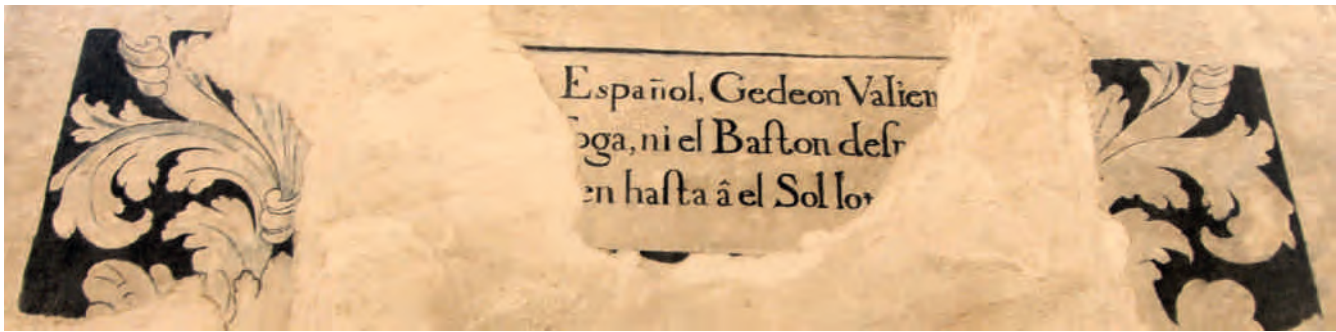 Español, Gedeon Valien
oga, ni el Baſton deſr
en haſta â el Sol lo